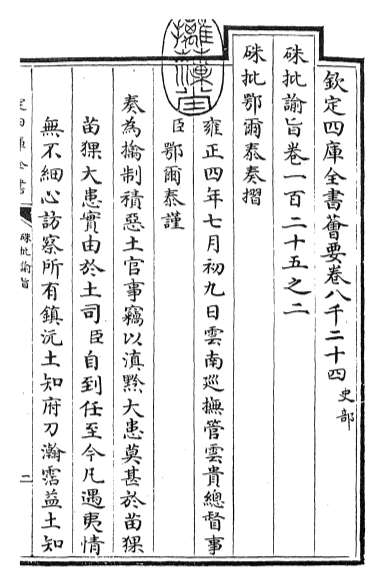 欽定四庫全書薈要卷八千二十四 史部
硃批諭旨卷一百二十五之二
硃批鄂爾泰奏摺
雍正四年七月初九日雲南巡撫管雲貴總督事
臣鄂爾泰謹
奏為擒制積惡土官事竊以滇黔大患莫甚於苗猓
苗猓大患實由於土司臣自到任至今凡遇夷情
無不細心訪察所有鎮沅土知府刀瀚霑益土知
硃批諭旨
二